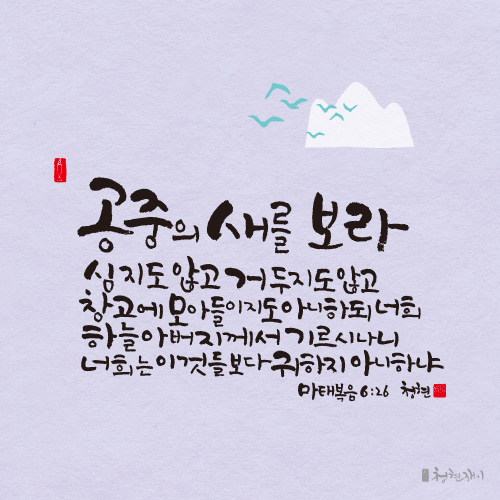 공중의 새를 보라
심지도 않고 거두지도 않고
창고에 모아들이지도 아니하되 너희
하늘 아버지께서 기르시나니
너희는 이것들보다 귀하지 아니하냐
마태복음 6:26 청현
청현재이